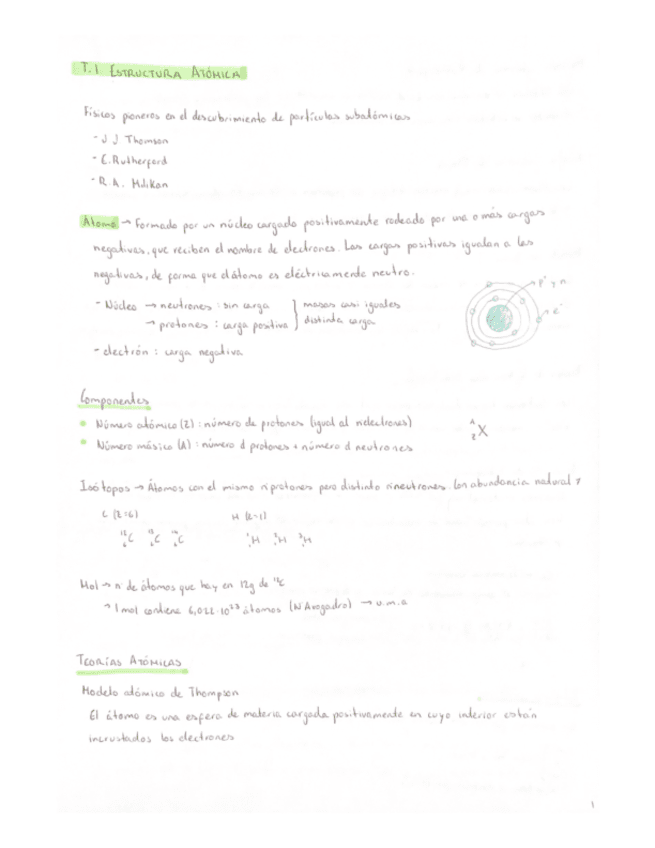 T.1 ESTRUCTURA ATÓMICA
Físicos pioneros en el descubrimiento de partículas subatómicas
- J J Thomson
- E. Rutherford
- R.A. Milikan
Átomo → Formado por un núcleo cargado positivamente rodeado por una o más cargas
negativas, que reciben el nombre de electrones. Las cargas positivas igualan a las
negativas, de forma que el átomo es eléctricamente neutro.
- Núcleo → neutrones : sin carga } masas casi iguales
→ protones : carga positiva } distinta carga
p⁺ y n
e⁻
- electrón : carga negativa
Componentes
• Número atómico (Z) : número de protones (igual al nºelectrones)
• Número másico (A) : número d protones + número d neutrones
ᴬ
zX
Isótopos → Átomos con el mismo nº protones pero distinto nºneutrones. Con abundancia natural
C (Z=6) H (Z=1)
¹²₆C ¹³₆C ¹⁴₆C ¹₁H ²₁H ³₁H
Mol → nº de átomos que hay en 12g de ¹²C
→ 1 mol contiene 6,022·10²³ átomos (N Avogadro) → u.m.a
TEORÍAS ATÓMICAS
Modelo atómico de Thompson
El átomo es una esfera de materia cargada positivamente en cuyo interior están
incrustados los electrones
1